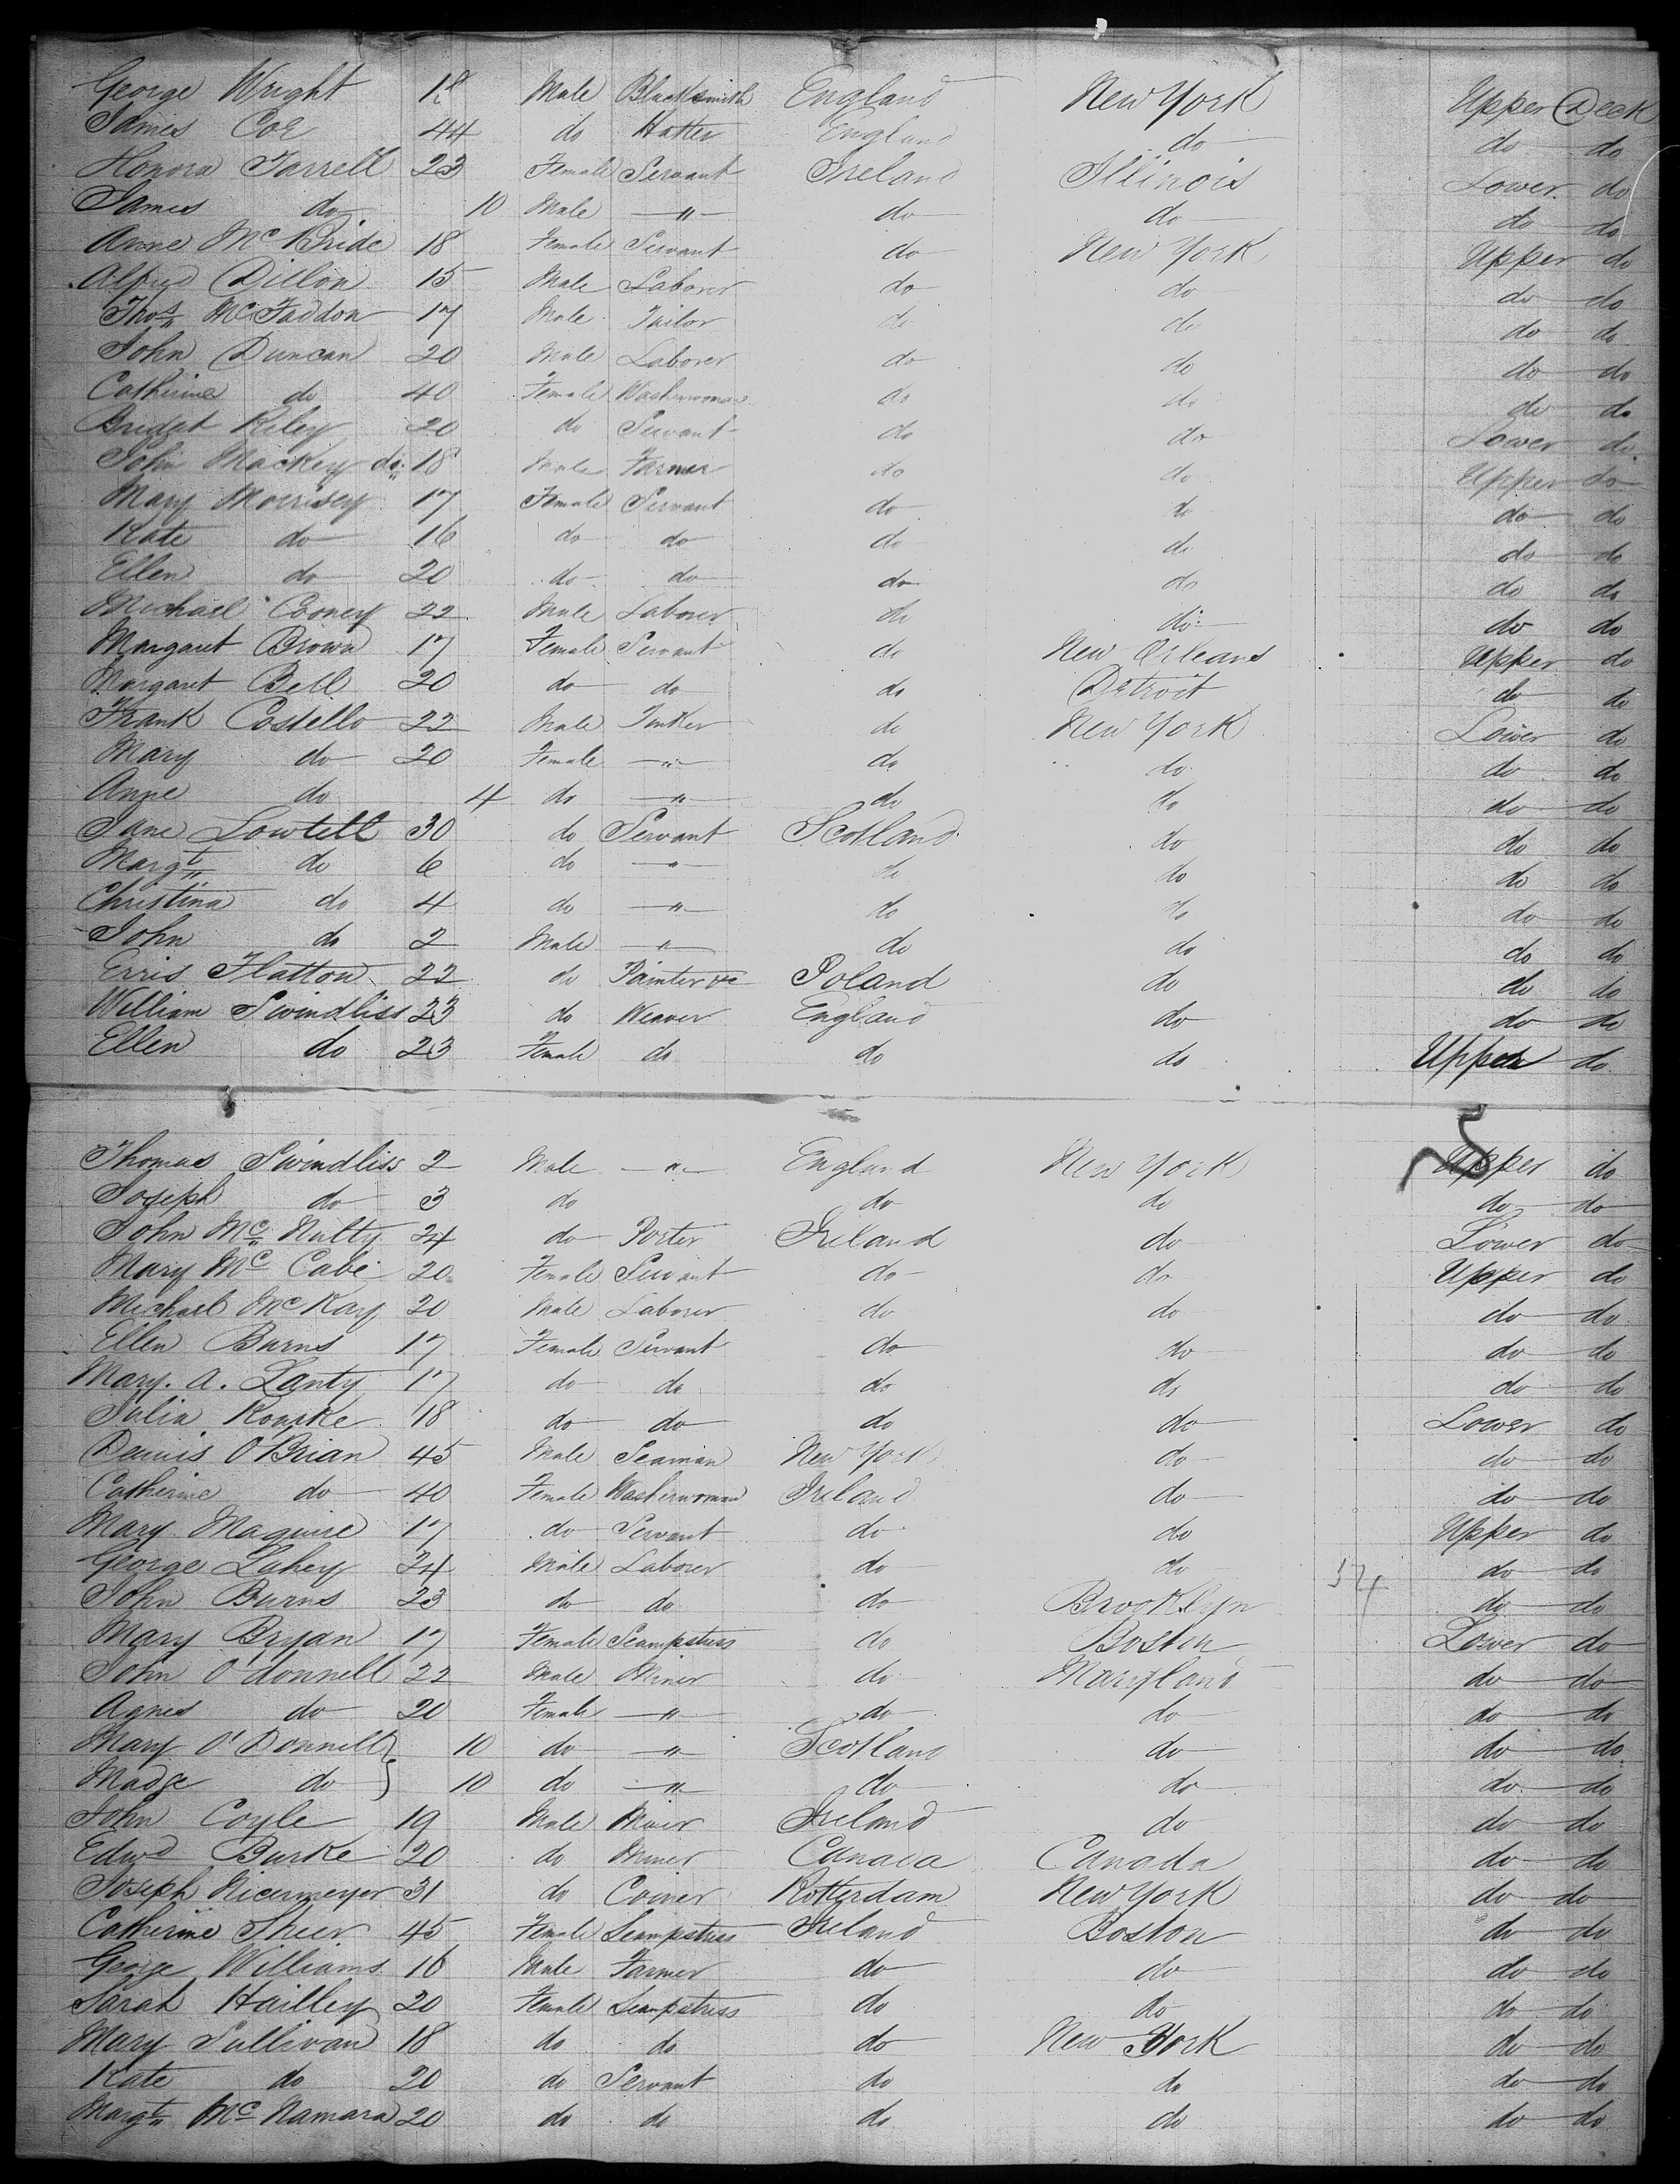 George Wright 18 Male Blacksmith England New York Upper Deck
James Coe 44 do Hatter England do do do
Honora Farrell 23 Female Servant Ireland Illinois Lower do
James do 10 Male " do do do do
Anne McBride 18 Female Servant do New York Upper do
Alfred Dillon 15 Male Laborer do do do do
Thos McFaddon 17 Male Tailor do do do do
John Duncan 20 Male Laborer do do do do
Catherine do 40 Female Washerwoman do do do do
Bridget Riley 20 do Servant do do Lower do
John Mackey do 18 Male Farmer do do Upper do
Mary Morrisey 17 Female Servant do do do do
Kate do 16 do do do do do do
Ellen do 20 do do do do do do
Michael Cooney 22 Male Laborer do do do do
Margaret Brown 17 Female Servant do New Orleans Upper do
Margaret Bell 20 do do do Detroit do do
Frank Costello 22 Male Tinker do New York Lower do
Mary do 20 Female " do do do do
Anne do 4 do " do do do do
Jane Lowtell 30 do Servant Scotland do do do
Margt do 6 do " do do do do
Christina do 4 do " do do do do
John do 2 Male " do do do do
Erris Flatton 22 do Painter &c Poland do do do
William Swindliss 23 do Weaver England do do do
Ellen do 23 Female do do do Upper do
5
Thomas Swindliss 2 Male " England New York Upper do
Joseph do 3 do do do do do
John McNulty 24 do Porter Ireland do Lower do
Mary McCabe 20 Female Servant do do Upper do
Michael McKay 20 Male Laborer do do do do
Ellen Burns 17 Female Servant do do do do
Mary. A. Lanty 17 do do do do do do
Julia Rourke 18 do do do do Lower do
Dennis O'Brian 45 Male Seaman New York do do do
Catherine do 40 Female Washerwoman Ireland do do do
Mary Maguire 17 do Servant do do Upper do
George Lahey 24 Male Laborer do do 54 do do
John Burns 23 do do do Brooklyn do do
Mary Bryan 17 Female Seampstress do Boston Lower do
John O'donnell 22 Male Miner do Maryland do do
Agnes do 20 Female " do do do do
Mary O'Donnell } 10 do " Scotland do do do
Madge do } 10 do " do do do do
John Coyle 19 Male Miner Ireland do do do
Edwd Burke 20 do Miner Canada Canada do do
Joseph Nicermeyer 31 do Coiner Rotterdam New York do do
Catherine Sheer 45 Female Seampstress Ireland Boston do do
George Williams 16 Male Farmer do do do do
Sarah Hailley 20 Female Seampstress do do do do
Mary Sullivan 18 do do do New York do do
Kate do 20 do Servant do do do do
Margt McNamara 20 do do do do do do